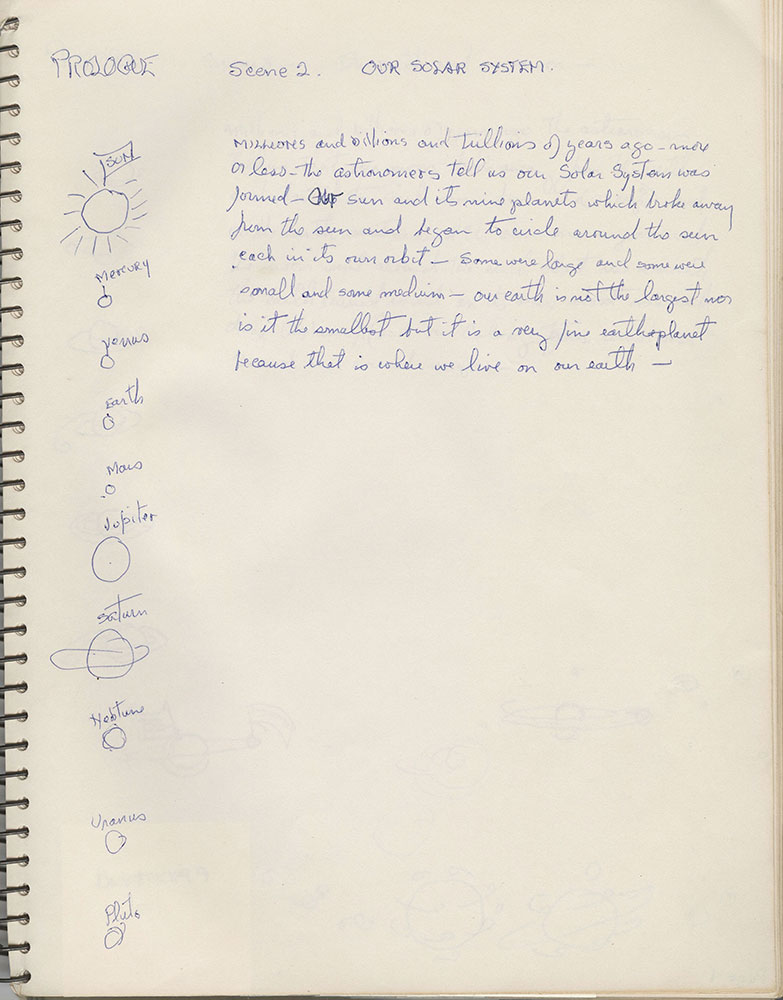 PROLOGUE Scene 2. OUR SOLAR SYSTEM.
SUN
MILLIONS and billions and trillions of years ago - more
or less - the astronomers tell us our Solar System was
formed - Our sun and its nine planets which broke away
from the sun and began to circle around the sun
each in its own orbit - Some were large and some were
small and some medium - our earth is not the largest nor
is it the smallest but it is a very fine earth planet
because that is where we live on our earth -
Mercury
Venus
Earth
Mars
Jupiter
Saturn
Neptune
Uranus
Pluto